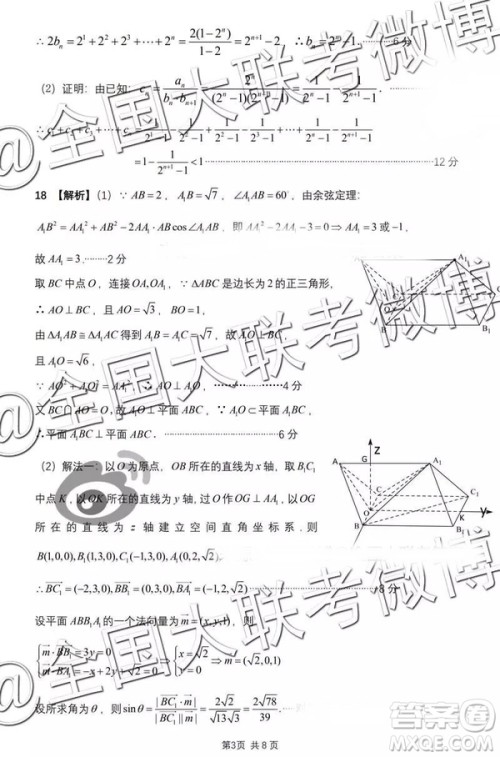 ∴ 2bₙ = 2¹ + 2² + 2³ + ⋯ + 2ⁿ = 2(1−2ⁿ)/(1−2) = 2ⁿ⁺¹ − 2  ∴ bₙ = 2ⁿ − 1. ………6分
(2) 证明: 由已知: cₙ = aₙ/(bₙ·bₙ₊₁) = 2ⁿ/((2ⁿ−1)(2ⁿ⁺¹−1)) = 1/(2ⁿ−1) − 1/(2ⁿ⁺¹−1).
∴ c₁ + c₂ + c₃ + ⋯ + cₙ = 1/(2¹−1) − 1/(2²−1) + ⋯ + 1/(2ⁿ−1) − 1/(2ⁿ⁺¹−1)
= 1 − 1/(2ⁿ⁺¹−1) < 1 ………12 分
18 【解析】(1) ∵ AB = 2, A₁B = √7, ∠A₁AB = 60°, 由余弦定理:
A₁B² = AA₁² + AB² − 2AA₁·AB cos∠A₁AB, 即 AA₁² − 2AA₁ − 3 = 0 ⇒ AA₁ = 3 或 −1,
故 AA₁ = 3. ………2分
取 BC 中点 O, 连接 OA, OA₁, ∵ ΔABC 是边长为 2 的正三角形,
∴ AO ⊥ BC, 且 AO = √3, BO = 1,
由 ΔA₁AB ≅ ΔA₁AC 得到 A₁B = A₁C = √7, 故 A₁O ⊥ BC,
且 A₁O = √6,
∵ AO² + A₁O² = AA₁², ∴ AO ⊥ A₁O, ………4分
又 BC∩AO = O, 故 A₁O ⊥ 平面 ABC,
∴ 平面 A₁BC ⊥ 平面 ABC. ………6 分
(2) 解法一: 以 O 为原点, OB 所在的直线为 x 轴, 取 B₁C₁
中点 K, 以 OK 所在的直线为 y 轴, 过 O 作 OG
所在的直线为 z 轴建立空间直角坐标系. 则
B(1,0,0), B₁(1,3,0), C₁(−1,3,0), A₁(0,2,√2),
∴ BC₁ = (−2,3,0), BB₁ = (0,3,0), BA₁ = (−1,2,√2) ………8 分
设平面 ABB₁A₁ 的一个法向量为 m = (x,y,1), 则
{m·BB₁ = 3y = 0, m·BA₁ = −x + 2y + √2 = 0 ⇒ {x = √2, y = 0 ⇒ m = (√2,0,1)
设所求角为 θ, 则 sinθ = |BC₁·m|/(|BC₁||m|) = 2√2/(√13√3) = 2√78/39.
第3页 共8页
A
G
Z
A₁
C
C₁
O
K
Y
B
B₁
@全国大联考微博
@全国大联考微博
答案圈